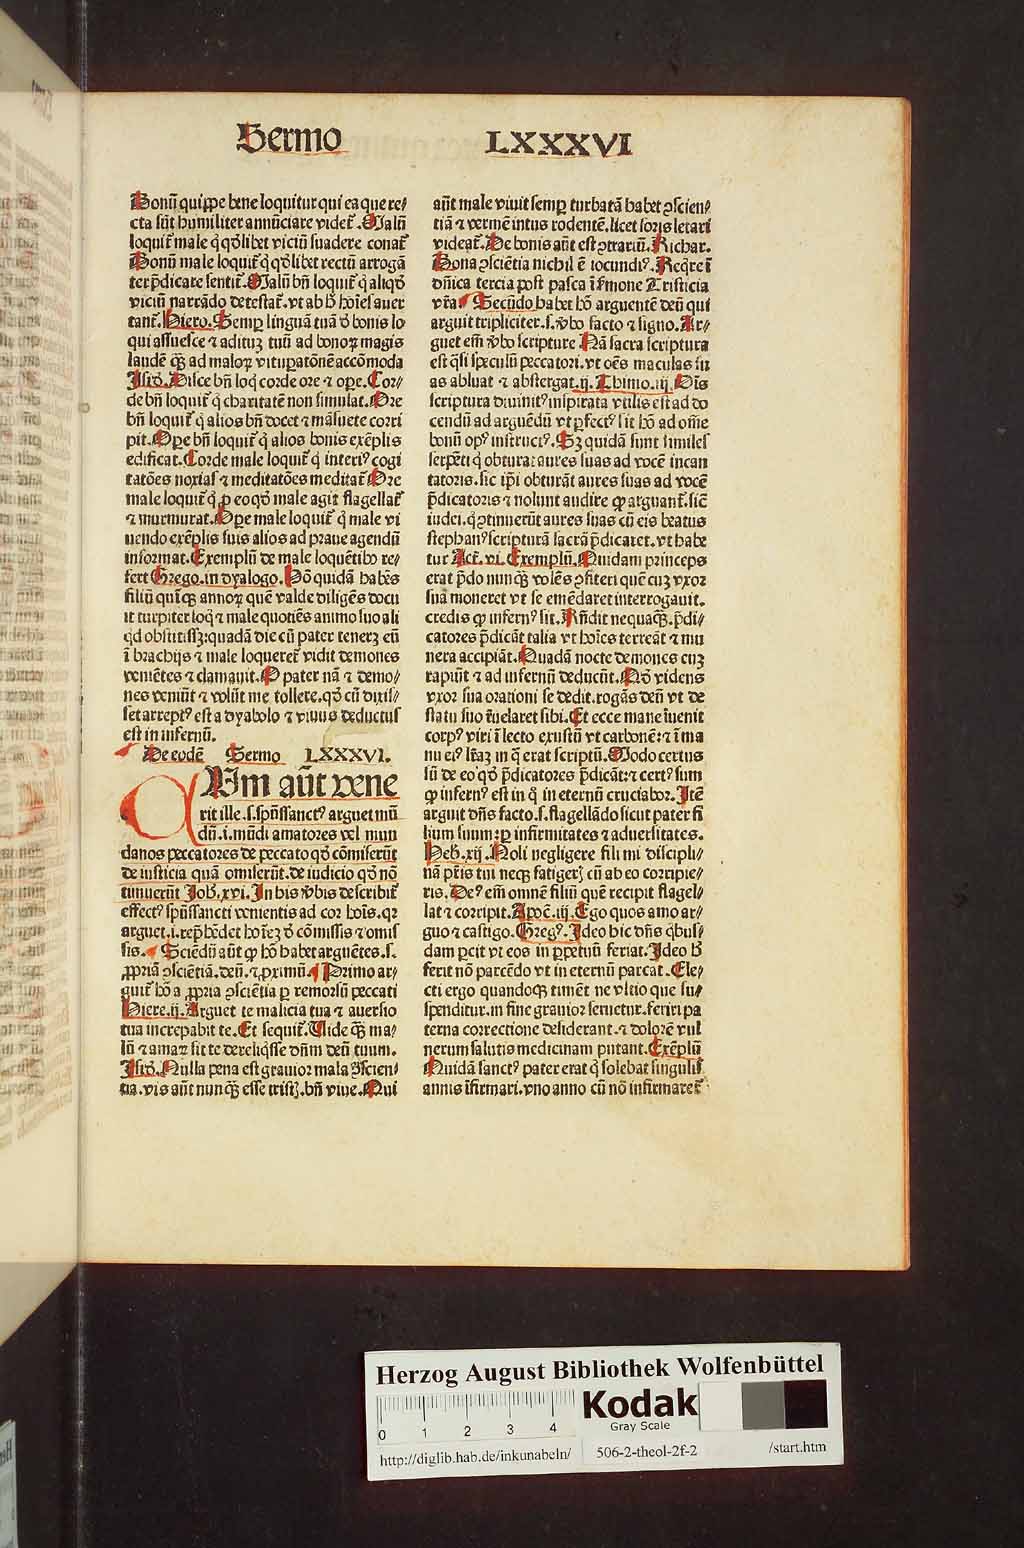 Sermo LXXXVI
Bonū quippe bene loquitur qui ea que re⸗
cta sūt humiliter annūciare videt᷑. Malū
loquit᷑ male q̇ qd̓libet viciū suadere conat᷑
Bonū male loquit᷑ q̇ qd̓libet rectū arrogā
ter p̄dicare sentit᷑. Malū bn̄ loquit᷑ q̇ aliqd̓
viciū narrādo detestat᷑. vt ab h̓ hoīes auer
tant᷑. Hiero. Semꝑ linguā tuā d̓ bonis lo
qui assuesce ⁊ adituꝫ tuū ad bonoꝝ magis
laudē qꝫ ad maloꝝ vituꝑatōnē accōmoda
Isid̓. Disce bn̄ loq̇ corde ore ⁊ oꝑe. Cor⸗
de bn̄ loquit᷑ q̇ charitatē non simulat. Ore
bn̄ loquit᷑ q̇ alios bn̄ docet ⁊ māsuete corri
pit. Oꝑe bn̄ loquit᷑ q̇ alios bonis exēplis
edificat. Corde male loquit᷑ q̇ interiꝰ cogi
tatōes noxias ⁊ meditatōes meditat᷑ Ore
male loquit᷑ q̇ ꝓ eo qd̓ male agit flagellat᷑
⁊ murmurat. Oꝑe male loquit᷑ q̇ male vi
uendo exēplis suis alios ad praue agendū
informat. Exemplū de male loquētibꝰ re⸗
fert Grego. in dyalogo. Qd̓ quidā habēs
filiū quīqꝫ annoꝝ quē valde diligēs docu
it turpiter loq̇ ⁊ male quotiēs animo suo ali
qd obstitissꝫ: quadā die cū pater tenerꝫ eū
ī brachijs ⁊ male loqueret᷑ vidit demones
veniētes ⁊ clamauit. O pater nā ⁊ demo⸗
nes veniūt ⁊ volūt me tollere. qd̓ cū dixis⸗
set arreptꝰ est a dyabolo ⁊ viuus deductus
est in infernū.
De eodē Sermo LXXXVI.
CUm aūt vene
rit ille .s. spūssanctꝰ arguet mū
dū .i. mūdi amatores vel mun
danos peccatores de peccato qd̓ cōmiserūt
de iusticia quā omiserūt. de iudicio qd̓ nō
timuerūt Joh̓. xvi. In his v̓bis describit᷑
effectꝰ spūssancti venientis ad cor hoīs. qꝛ
arguet .i. rep̄hēdet hoīeꝫ d̓ cōmissis ⁊ omis
sis. Sciēdū aūt ꝙ hō habet arguētes .s.
ꝓpriā ꝯsciētiā. deū. ⁊ ꝓximū. Primo ar⸗
guit᷑ hō a ꝓpria ꝯsciētia ꝑ remorsū peccati
Hiere. ij. Arguet te malicia tua ⁊ auersio
tua increpabit te. Et sequit᷑. Vide qꝫ ma⸗
lū ⁊ amaꝝ sit te dereliq̇sse dn̄m deū tuum.
Isid̓. Nulla pena est grauior mala ꝯscien⸗
tia. vis aūt nunqꝫ esse tristꝭ. bn̄ viue. Qui
aūt male viuit semꝑ turbatā habet ꝯscien⸗
tiā ⁊ vermē intus rodentē. licet foris letari
videat᷑. De bonis aūt est ꝯtrariū. Richar.
Bona ꝯsciētia nichil ē iocundiꝰ. Req̇re ī
dn̄ica tercia post pasca ī s̓mone Tristicia
vr̄a. Secūdo habet hō arguentē deū qui
arguit tripliciter .s. v̓bo facto ⁊ signo. Ar⸗
guet em̄ v̓bo scripture Nā sacra scriptura
est q̇si speculū peccatori. vt oēs maculas su
as abluat ⁊ abstergat. ij. Thimo. iij. Ois
scriptura diuinitꝰ inspirata vtilis est ad do
cendū ad arguēdū vt ꝑfectꝰ sit hō ad om̄e
bonū opꝰ instructꝰ. Sꝫ quidā sunt similes
serpēti q̇ obturat aures suas ad vocē incan
tatoris. sic ip̄i obturāt aures suas ad vocē
p̄dicatoris ⁊ nolunt audire ꝙ arguant᷑. sic̄
iudei. q̇ ꝯtinuerūt aures suas cū eis beatus
stephanꝰ scripturā sacrā p̄dicaret. vt habe
tur Act᷑. vi. Exemplū. Quidam princeps
erat p̄do nunqꝫ volēs ꝯfiteri quē cuꝫ vxor
suā moneret vt se emēdaret interrogauit.
credis ꝙ infernꝰ sit. Rn̄dit nequaqꝫ. p̄di⸗
catores p̄dicāt talia vt hoīes terreāt ⁊ mu
nera accipiāt. Quadā nocte demones euꝫ
rapiūt ⁊ ad infernū deducūt. Qd̓ videns
vxor sua orationi se dedit. rogās deū vt de
statu suo reuelaret sibi. Et ecce mane īuenit
corpꝰ viri ī lecto exustū vt carbonē: ⁊ ī ma
nu eiꝰ lr̄aꝫ in q̄ erat scriptū. Modo certus
sū de eo qd̓ p̄dicatores p̄dicāt: ⁊ certꝰ sum
ꝙ infernꝰ est in q̇ in eternū cruciabor. Itē
arguit dn̄s facto .s. flagellādo sicut pater fi
lium suum: ꝑ infirmitates ⁊ aduersitates.
Heb̓. xij. Noli negligere fili mi discipli⸗
nā pr̄is tui neqꝫ fatigerꝭ cū ab eo corripie⸗
ris. Deꝰ em̄ omnē filiū quē recipit flagel⸗
lat ⁊ corripit. Apoc̄. iij. Ego quos amo ar⸗
guo ⁊ castigo. Gregꝰ. Ideo hic dn̄s q̇bus⸗
dam ꝑcit vt eos in ꝑpetuū feriat. Ideo h̓
ferit nō parcēdo vt in eternū parcat. Ele⸗
cti ergo quandoqꝫ timēt ne vltio que su⸗
spenditur. in fine grauior seruetur. feriri pa
terna correctione desiderant. ⁊ dolorē vul
nerum salutis medicinam putant. Exēplū
Quidā sanctꝰ pater erat q̇ solebat singulis
annis īfirmari. vno anno cū nō infirmaret᷑
Herzog August Bibliothek Wolfenbüttel
0 1 2 3 4
Kodak
Gray Scale
http://diglib.hab.de/inkunabeln/ 506-2-theol-2f-2 /start.htm